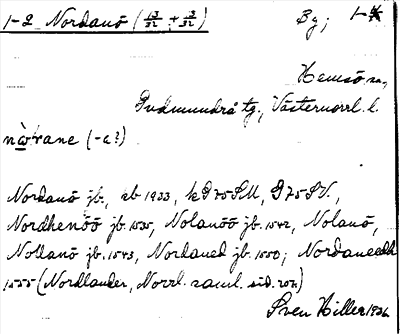 1-2 Nordanö (13/32 + 3/32) By; 1-4
Hemsö sn,
Gudmundrå tg., Västernorrl. l.
Nordanö jb., eb 1933, k975SU, 975SV.,
Nordhenöö jb. 1535, Nolanöö jb. 1542, Nolanö,
Noldanö jb. 1543, Nordaned jb. 1550; Nordaneedh
1555 (Nordlander, Norrl. saml. sid. 207)
Sven Hiller 1936